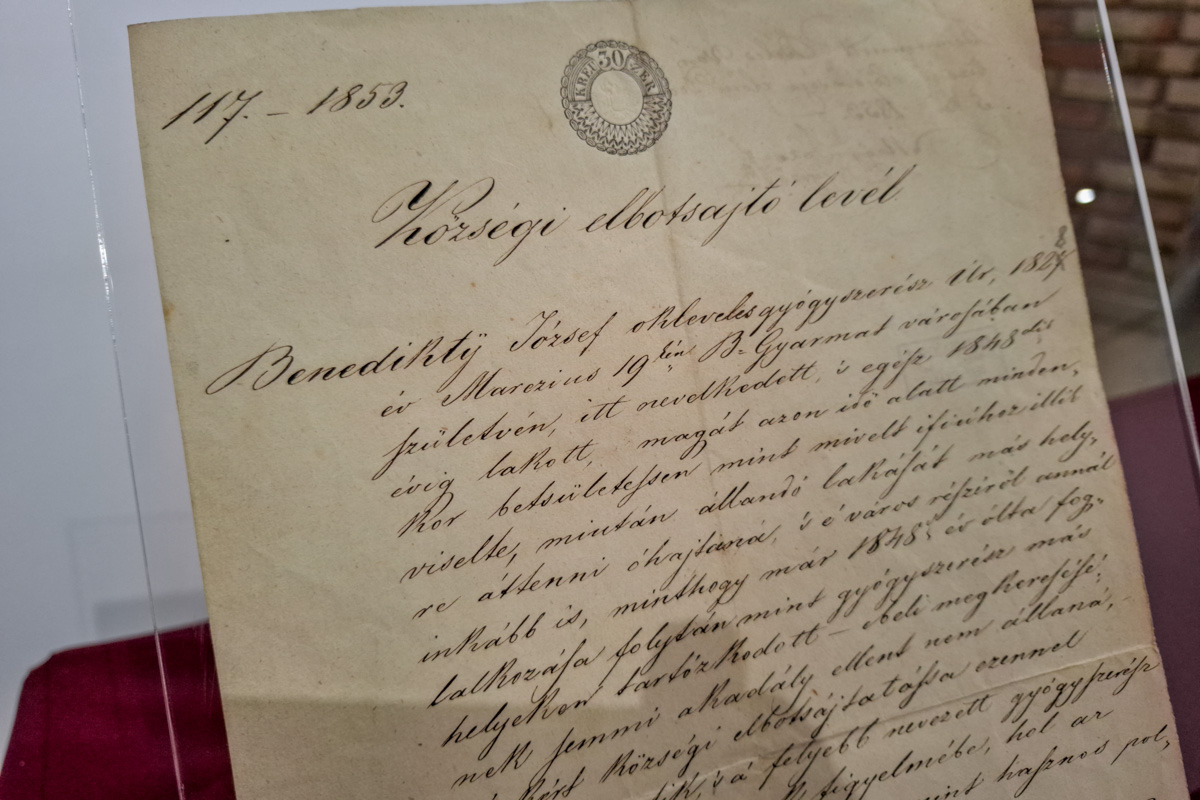 117. – 1853.
30
KREUZER
Községi elbotsajtó levél
Benediktÿ József okleveles gyógyszerész Úr, 1828
év Marczius 19kén B-Gyarmat városában
születvén, itt nevelkedett, 's egész 1848dik
évig lakott, magát azon idő alatt minden,
kor betsületessen mint mivelt ifiúhoz illik
viselte, miután állandó lakását más hely,
re áttenni óhajtaná, 's é város részéről annál
inkább is, minthogy már 1848k év ólta fog,
lalkozása folytán mint gyógyszerész más
helyeken tartózkodott – ebeli megkeresésé,
nek semmi akadály ellent nem állana,
kért községi elbotsájtatássa ezennel
's á felyebb nevezett gyógyszerész
figyelmébe, hol az
mint hasznos pol,